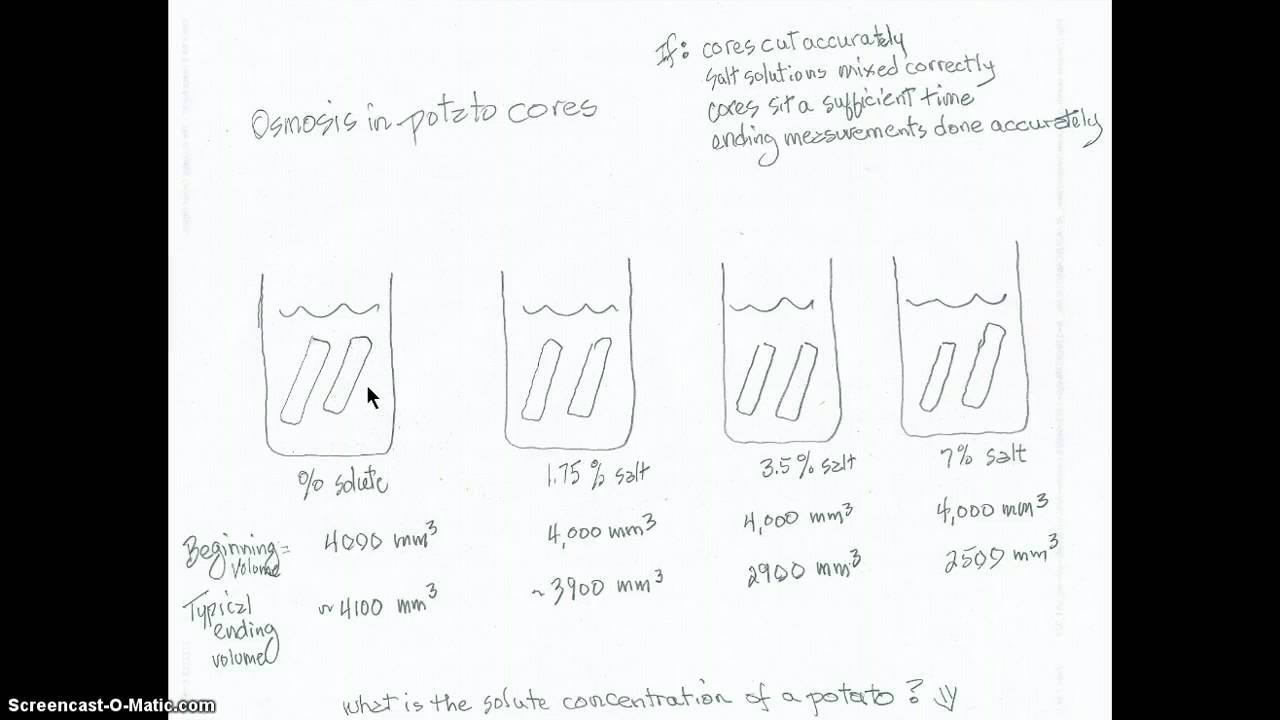 Osmosis in potato cores
If: cores cut accurately
salt solutions mixed correctly
cores sit a sufficient time
ending measurements done accurately
% solute
1.75 % salt
3.5 % salt
7% salt
Beginning = volume
4000 mm³
4,000 mm³
4,000 mm³
4,000 mm³
Typical
ending
volume
~ 4100 mm³
~ 3900 mm³
2900 mm³
2500 mm³
what is the solute concentration of a potato?
Screencast-O-Matic.com